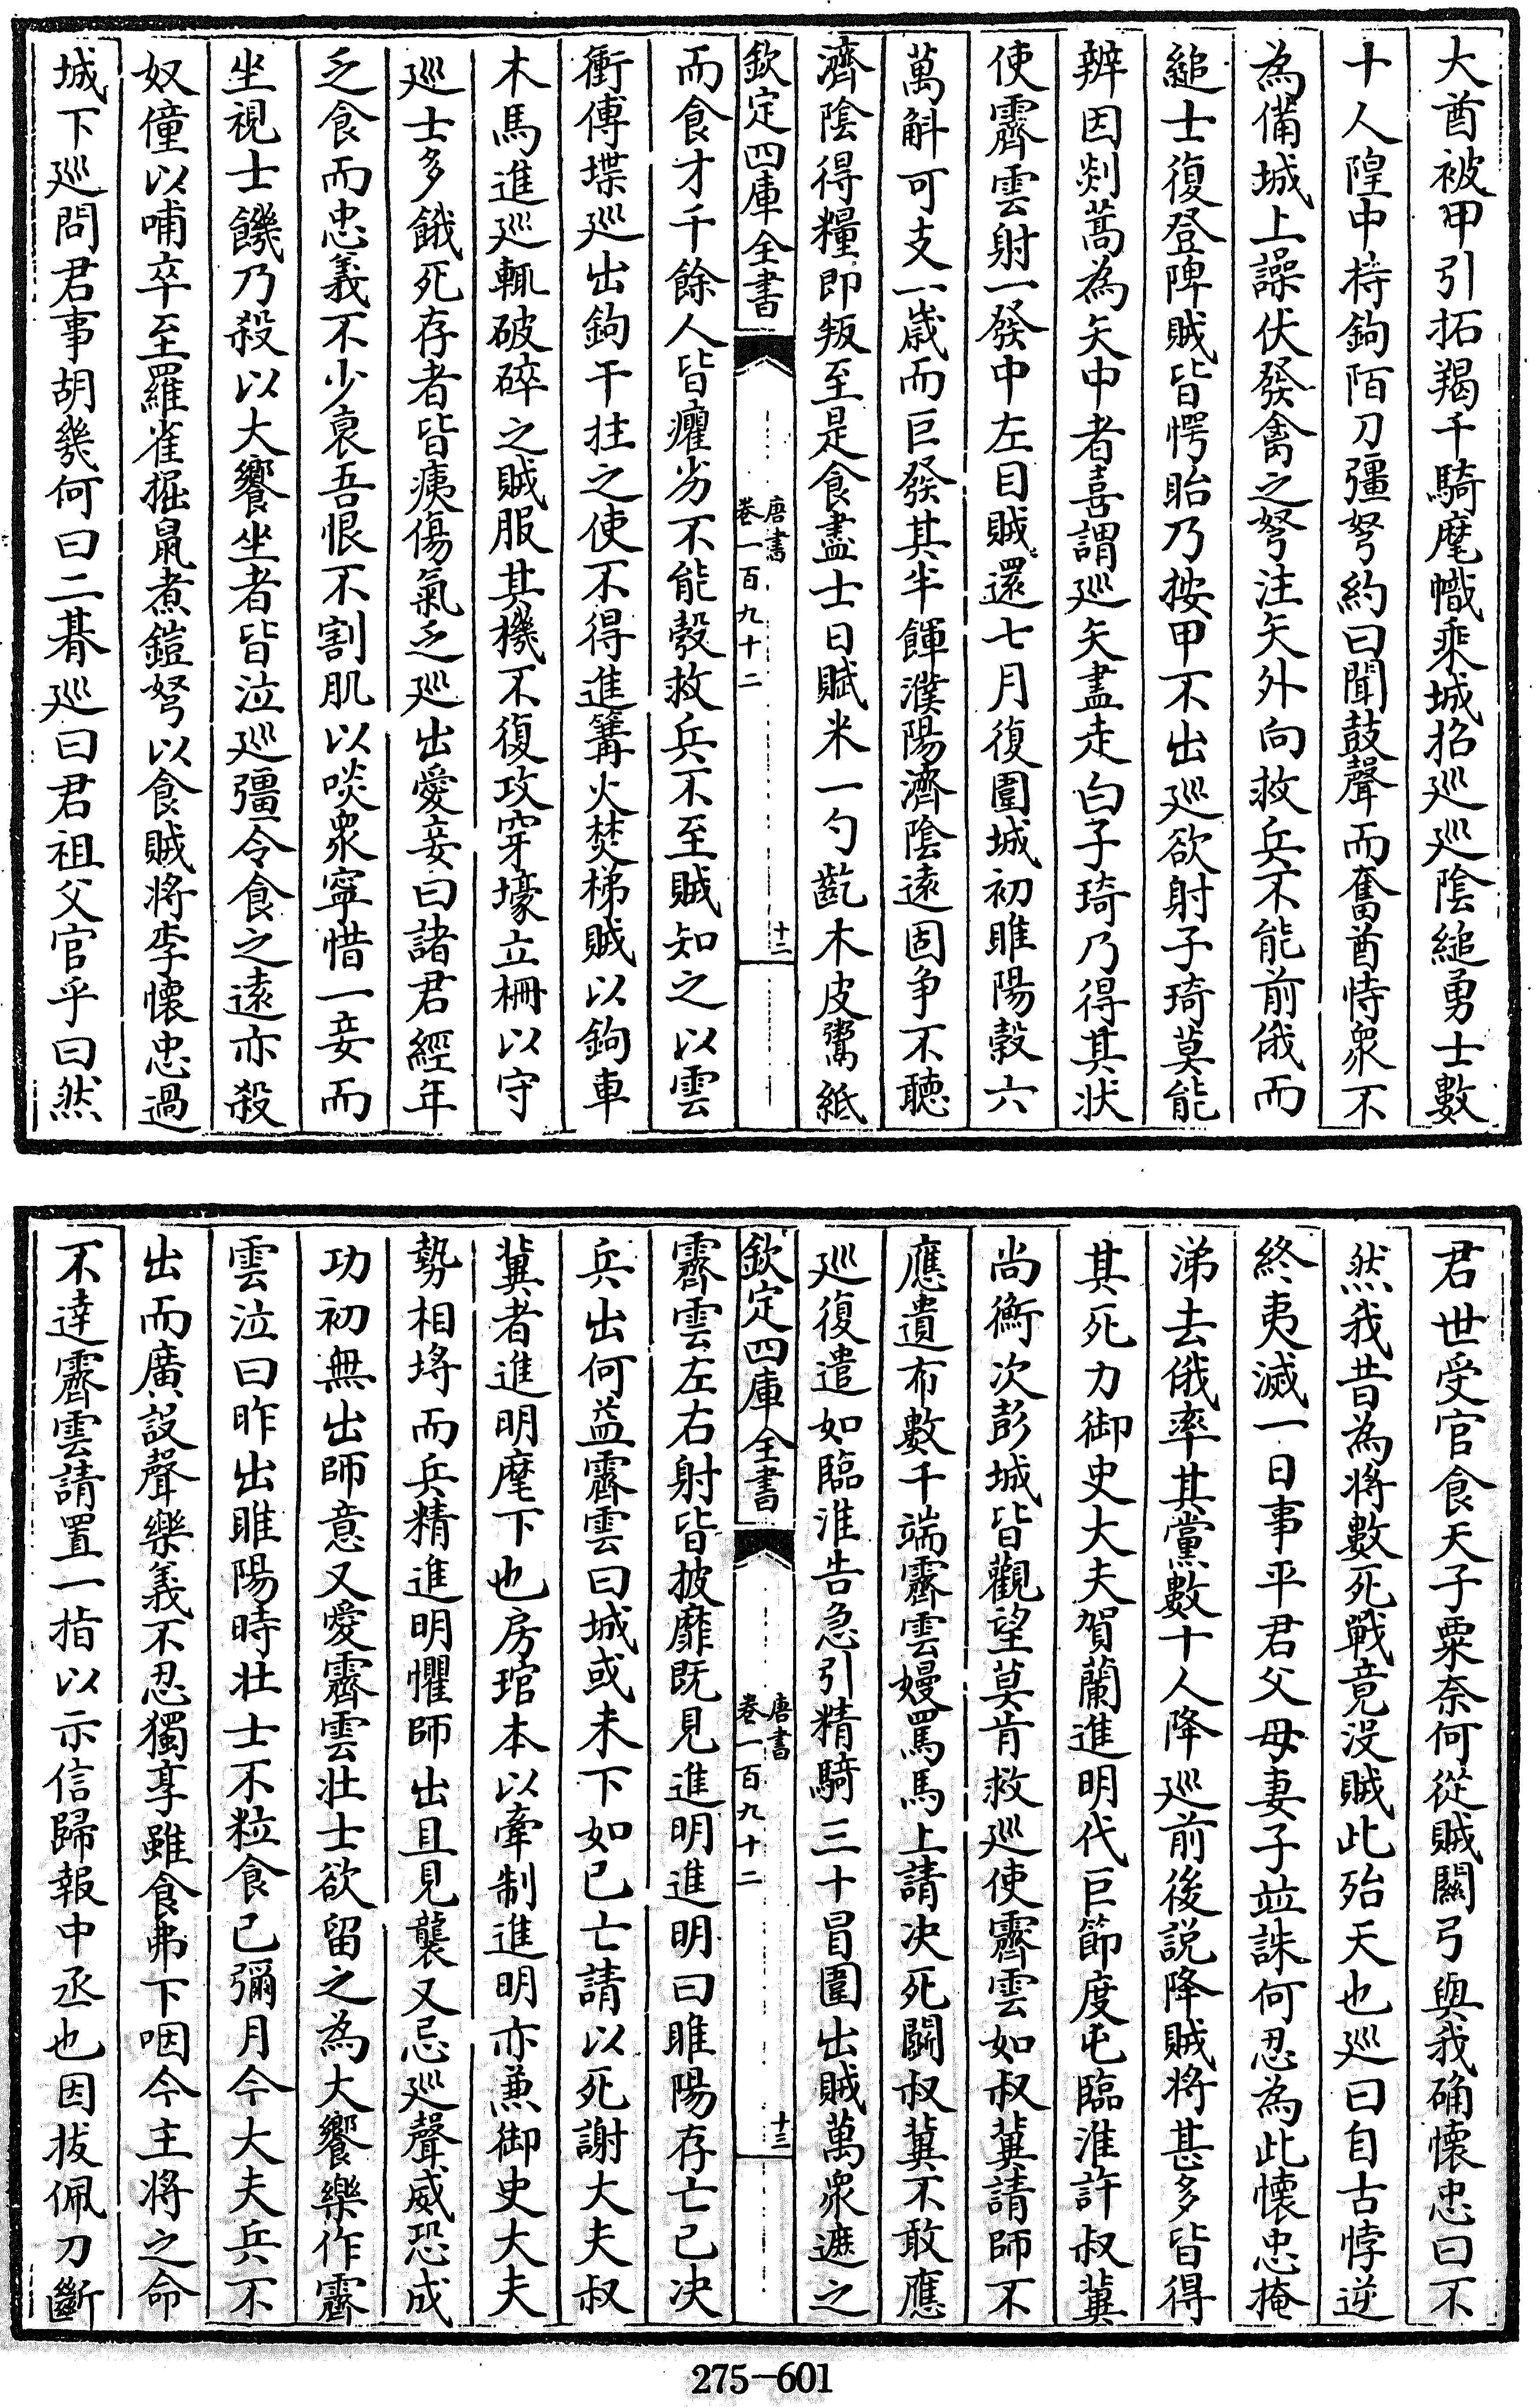 大酋被甲引拓羯千騎麾幟乘城招巡巡陰縋勇士數
十人隍中持鉤陌刀彊弩約曰聞鼓聲而奮酋恃衆不
為備城上譟伏發禽之弩注矢外向救兵不能前俄而
縋士復登陴賊皆愕眙乃按甲不出巡欲射子琦莫能
辨因剡蒿為矢中者喜謂巡矢盡走白子琦乃得其状
使霽雲射一發中左目賊還七月復圍城初睢陽穀六
萬斛可支一歲而巨發其半餫濮陽濟陰遠固争不聽
濟陰得糧即叛至是食盡士日賦米一勺齕木皮鬻紙
欽定四庫全書
唐書
卷一百九十二
十二
而食才千餘人皆癯劣不能彀救兵不至賊知之以雲
衝傅堞巡出鉤干拄之使不得進篝火焚梯賊以鉤車
木馬進巡輒破碎之賊服其機不復攻穿壕立柵以守
巡士多餓死存者皆痍傷氣乏巡出愛妾曰諸君經年
乏食而忠義不少衰吾恨不割肌以啖衆寧惜一妾而
坐視士饑乃殺以大饗坐者皆泣巡彊令食之遠亦殺
奴僮以哺卒至羅雀掘鼠煮鎧弩以食賊將李懷忠過
城下巡問君事胡幾何曰二朞巡曰君祖父官乎曰然
君世受官食天子粟奈何從賊關弓與我确懷忠曰不
然我昔為將數死戰竟没賊此殆天也巡曰自古悖逆
終夷滅一日事平君父母妻子並誅何忍為此懷忠掩
涕去俄率其黨數十人降巡前後説降賊將甚多皆得
其死力御史大夫賀蘭進明代巨節度屯臨淮許叔冀
尚衡次彭城皆觀望莫肯救巡使霽雲如叔冀請師不
應遺布數千端霽雲嫚罵馬上請决死鬭叔冀不敢應
巡復遣如臨淮告急引精騎三十冒圍出賊萬衆遮之
欽定四庫全書
唐書
卷一百九十二
十三
霽雲左右射皆披靡既見進明進明曰睢陽存亡已决
兵出何益霽雲曰城或未下如已亡請以死謝大夫叔
冀者進明麾下也房琯本以牽制進明亦兼御史大夫
勢相埒而兵精進明懼師出且見襲又忌巡聲威恐成
功初無出師意又愛霽雲壮士欲留之為大饗樂作霽
雲泣曰昨出睢陽時壮士不粒食已彌月今大夫兵不
出而廣設聲樂義不忍獨享雖食弗下咽今主將之命
不達霽雲請置一指以示信歸報中丞也因拔佩刀斷
275-601